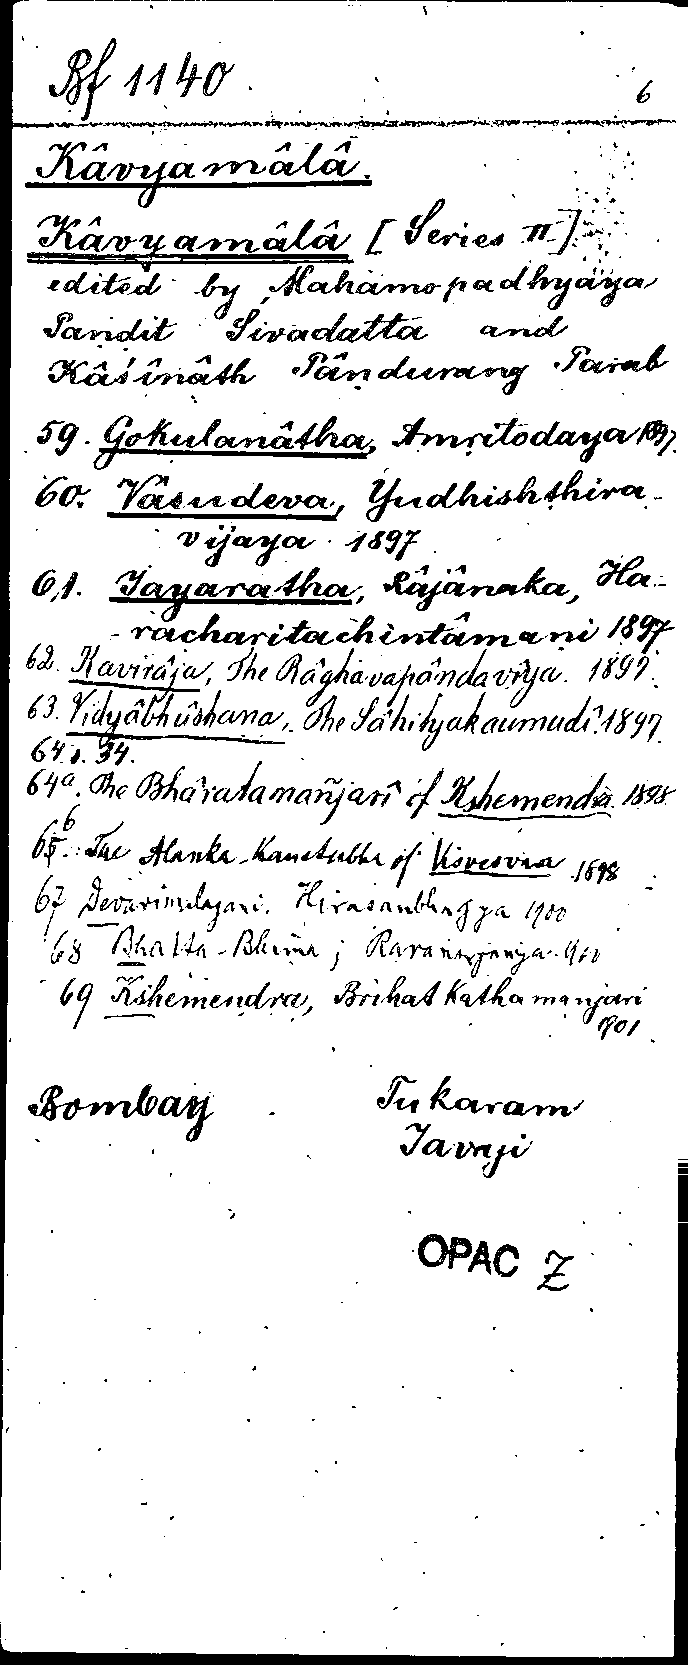 Bf 1140
6
Kâvyamâlâ.
Kâvyamâlâ [Series II]
edited by Mahamopadhyâya
Pandit Sivadatta and
Kâśînâth Pânḍurang Parab
59. Gokulanâtha, Amṛitodaya 1897.
60. Vâsudeva, Yudhishṭhira-
vijaya 1897
61. Jayaratha, Râjânaka, Ha-
racharitachintâmaṇi 1897
62. Kavirâja, The Râghavapânḍavîya. 1897.
63. Vidyâbhûshana, The Sâhityakaumudî. 1897.
64 s. 34.
64a. The Bhâratamañjarî of Kshemendra. 1898
66. The Alanka-Kaustubha of Visvesvra 1898
67 1900
68 Bhatta-Bhima; 1900
69 Kshemendra, Brihat Kathamanjari
1901.
Bombay
Tukaram
Javaji
OPAC Z